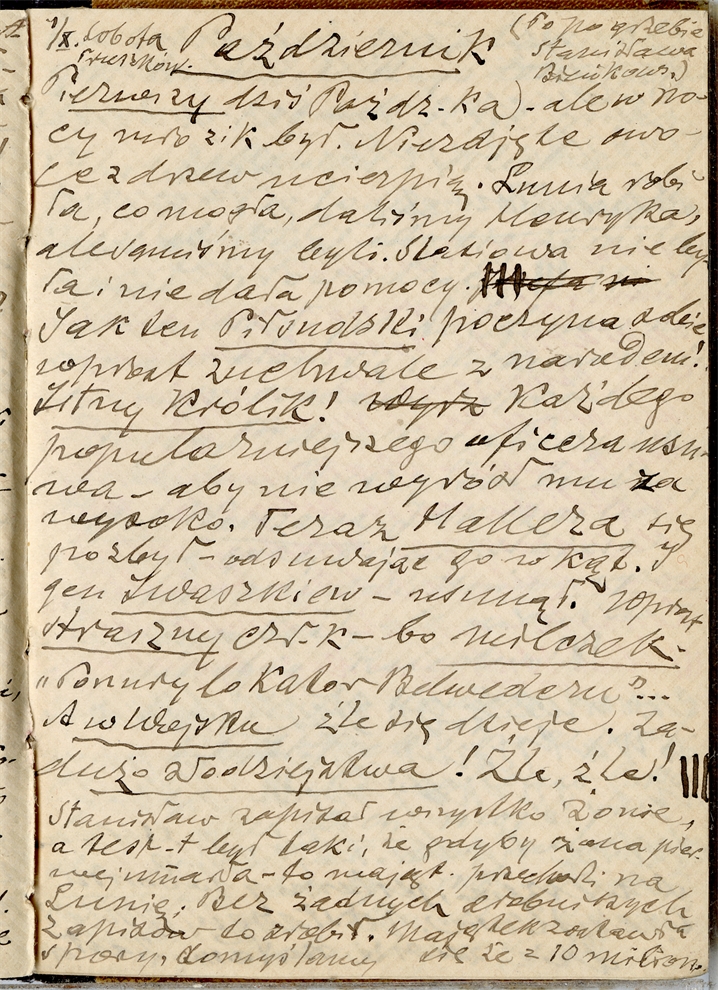 1/X. Sobota Październik (Po pogrzebie
Pruszków. Stanisława
Bieńkows.)
Pierwszy dziś Paźdz-ka) - ale w no-
cy mrozik był. Niezdjęte owo-
ce z drzew ucierpią. Lunia robi
ła, co mogła, daliśmy Henryka,
ale sami śmy byli. Stasiowa nie by
ła i nie dała pomocy.
Jak ten Piłsudski poczyna sobie
wprost zuchwale z narodem!
Istny Królik! Każdego
popularniejszego oficera usu-
wa - aby nie wyrósł mu za
wysoko. Teraz Hallera się
pozbył - odsuwając go w kąt. I
gen Iwaszkiew - usunął. Wprost
straszny czł.k - bo milczek.
"Ponury lokator Belwederu"...
A w Wojsku źle się dzieje. Za-
dużo złodziejstwa! Źle, źle!
Stanisław zapisał wszystko żonie,
a test-t był taki, że gdyby żona pier-
wej umarła - to mająt. przechodzi na
Lunię. Bez żadnych drobniejszych
zapisów to zrobił. Majątek zostawia
spory, domyślamy się że z 10 milion.